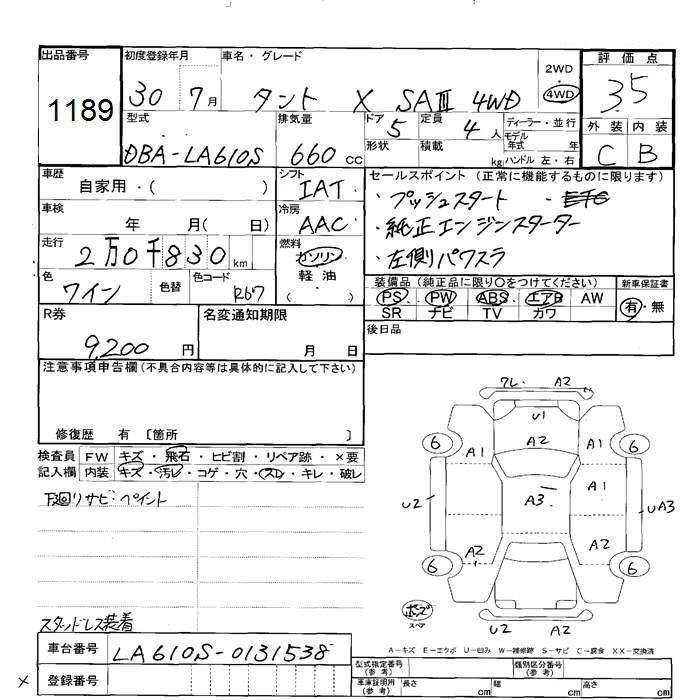 出品番号
1189
初度登録年月
30 7月
車名・グレード
タント X SAⅢ 4WD
2WD
・
4WD
評価点
35
外装 内装
C B
型式
DBA-LA610S
排気量
660 cc
ドア
5
定員
4 人
ディーラー・並行
モデル年式 年
形状
積載 kg
ハンドル 左・右
車歴
自家用・( )
シフト
IAT
車検
年 月( 日)
冷房
AAC
走行
2万0千830 km
燃料
ガソリン
軽油
( )
色
ワイン
色替
色コード
R67
セールスポイント (正常に機能するものに限ります)
・プッシュスタート
・純正エンジンスターター
・左側パワスラ
装備品 (純正品に限り○をつけてください)
PS PW ABS エアB AW
SR ナビ TV カワ
新車保証書
有・無
R券
9,200 円
名変通知期限
月 日
後日品
注意事項申告欄 (不具合内容等は具体的に記入して下さい)
修復歴 有 〔箇所 〕
検査員記入欄
FW キズ・飛石・ヒビ割・リペア跡・×要
内装 キズ・汚レ・コゲ・穴・スレ・キレ・破レ
下廻リサビ・ペイント
スタッドレス装着
ワレ A2
U1
A2
6 6
A1 A1
U2 A3 A1 UA3
A2 A2
6 6
ボンズ
スペア
U2 A2
A-キズ E-エクボ U-凹み W-補修跡 S-サビ C-腐食 XX-交換済
車台番号
LA610S-0131538
× 登録番号
型式指定番号 (参考)
類別区分番号 (参考)
車庫証明用 (参考) 長さ cm 幅 cm 高さ cm